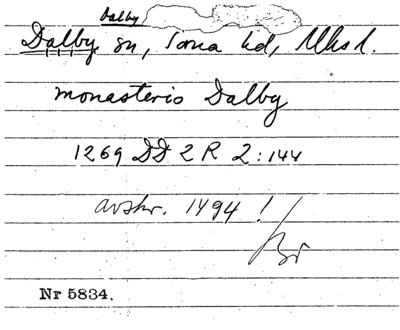 Dalby
Dalby sn, Torna hd, Mhsl.
monasterio Dalby
1269 DD 2 R 2:144
avskr. 1494!
Br
Nr 5834.